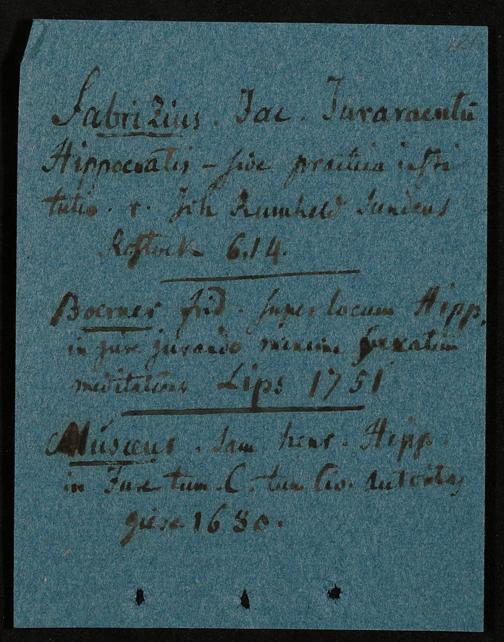 Fabrizius. Jac. Juramentū
Hippocratis – sive practica insti
tutio. r. Joh Rumheld
Rostock 614.
Boerner frid. super locum Hipp.
in jure jurando maxime
meditationes Lips 1751
Musaeus. Sam. henr. Hipp.
in Jure tum. C. tum Civ. autoritas
1630.